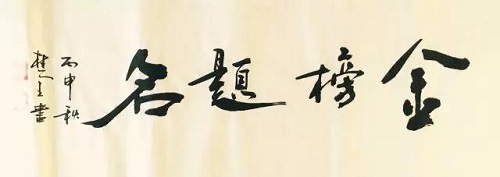 金榜題名
丙申秋
書